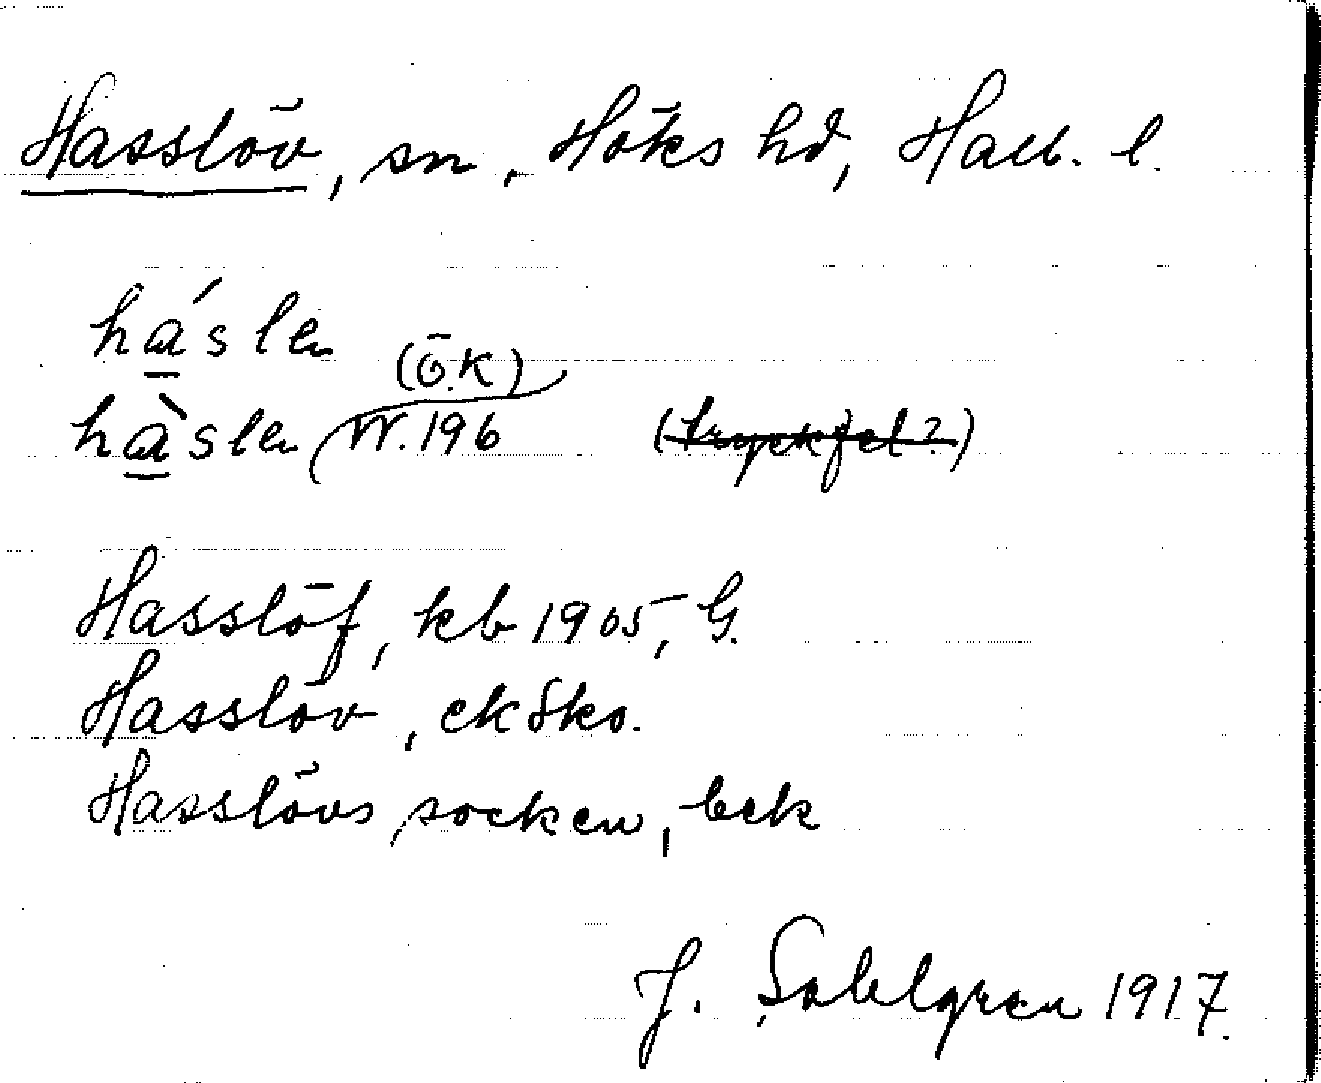 Hasslöv, sn, Höks hd, Hall. l.
há̱sle
(Ö.K)
hà̱sle W.196 (Tryckfel?)
Hasslöf, kb 1905, G.
Hasslöv, ekSko.
Hasslövs socken, bek
J. Sahlgren 1917